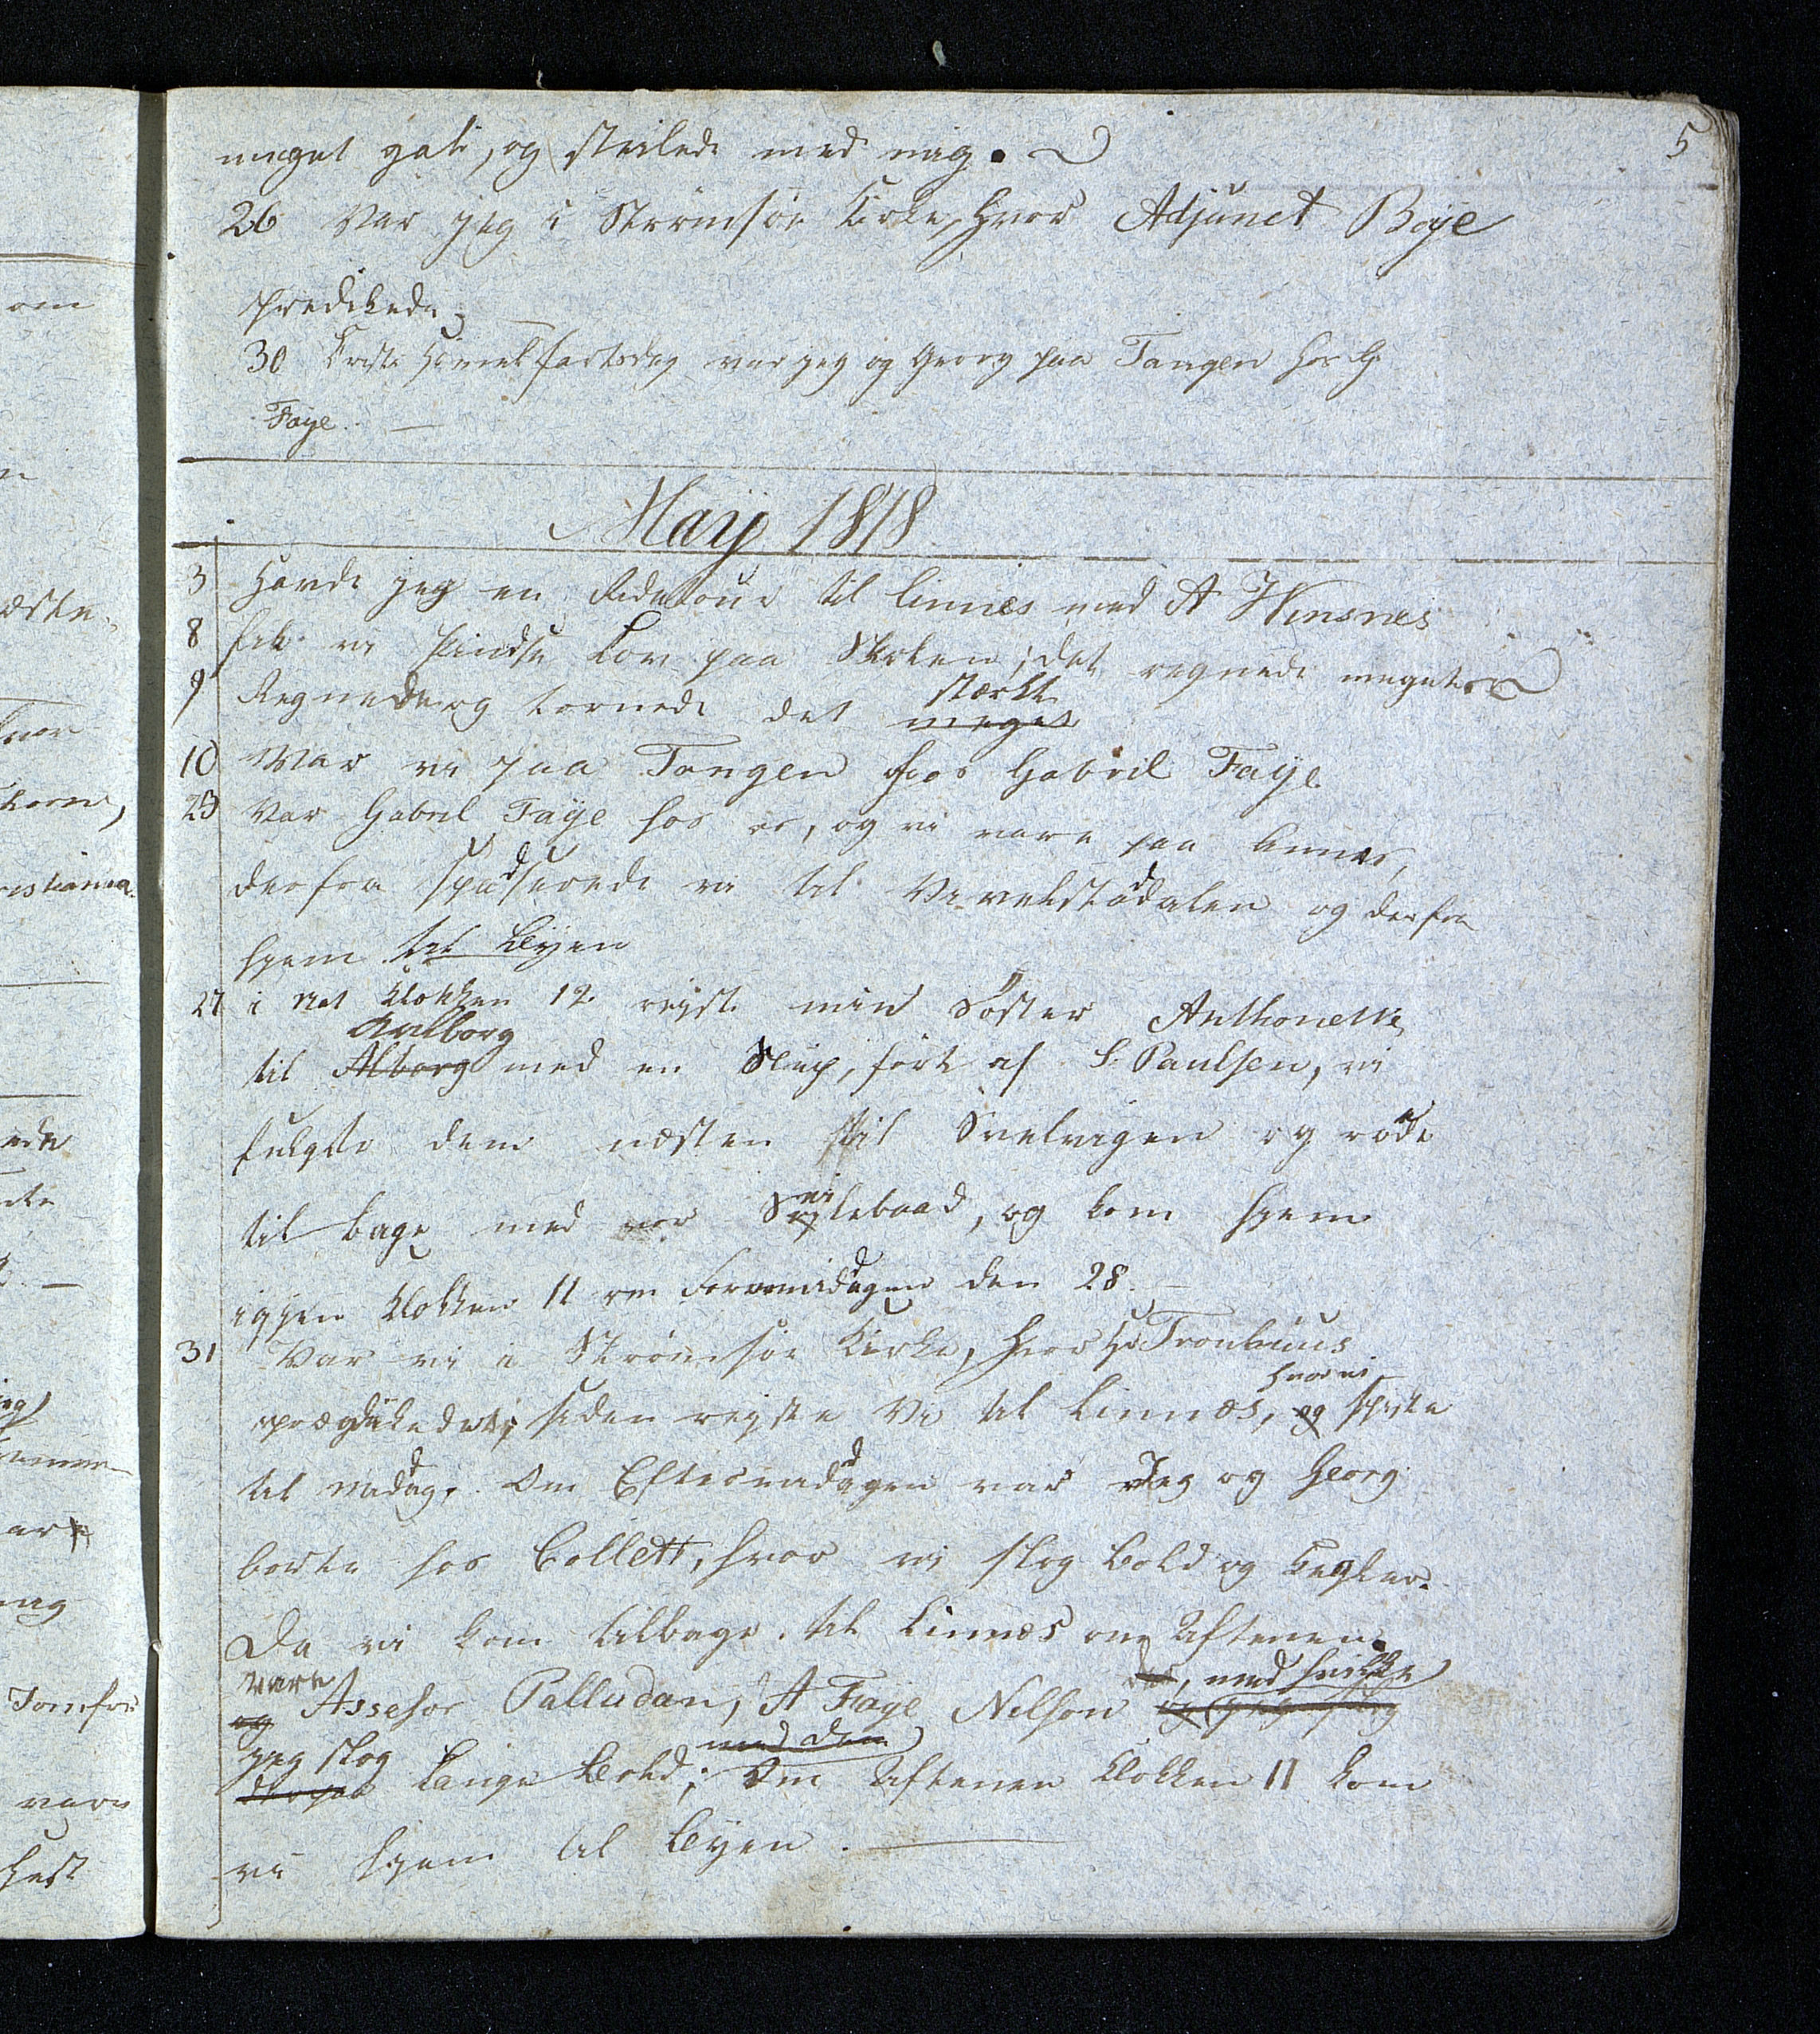 5
meget gali, og steilede med mig.
26 Var jeg i Strömsöe Kirke, hvor Adjunct Boye
predikede;
30 Cristi Himmelfartsdag var jeg og Georg paa Tangen hos G
Faye.
May 1818
3 Havde jeg en Ridetour til Linnes med A Winsnes
8 fik vi Pindse Lov paa Skolen; det regnede meget
9 Regnede og tornede det stærkt meget
10 War vi paa Tangen hos Gabriel Faye
23 Var Gabriel Faye hos os, og vi vare paa Linnes,
derfra spadserede vi til Vivelstadalen og derfra
hjem til Byen
27 i Nat Klokken 12 rejste min Söster Anthonette
Aalborg
til Alborg med en Slup, fört af S. Paulsen, vi
fulgte dem næsten til Svelvigen og roede
til bage med vor Seilebaad, og kom hjem
igjen Klokken 11 om Formiddagen den 28.
31 Var vi i Strömsöe Kirke, hvor Hr Tronhuus
hvor vi
prædikede; siden rejste Vi til Linnæs, og spiste
til middag. Om Eftermiddagen var Jeg og Georg
borte hos Collett, hvor vi slog Bold og Kegler.
Da vi kom tilbage til Linnæs om Aftenen
vare der, med hvilke
og Assesor Palludan, A Faye Nilson og jeg slog
jeg slog med dem
derpaa Lange Bold; Om Aftenen Klokken 11 kom
vi hjem til Byen.